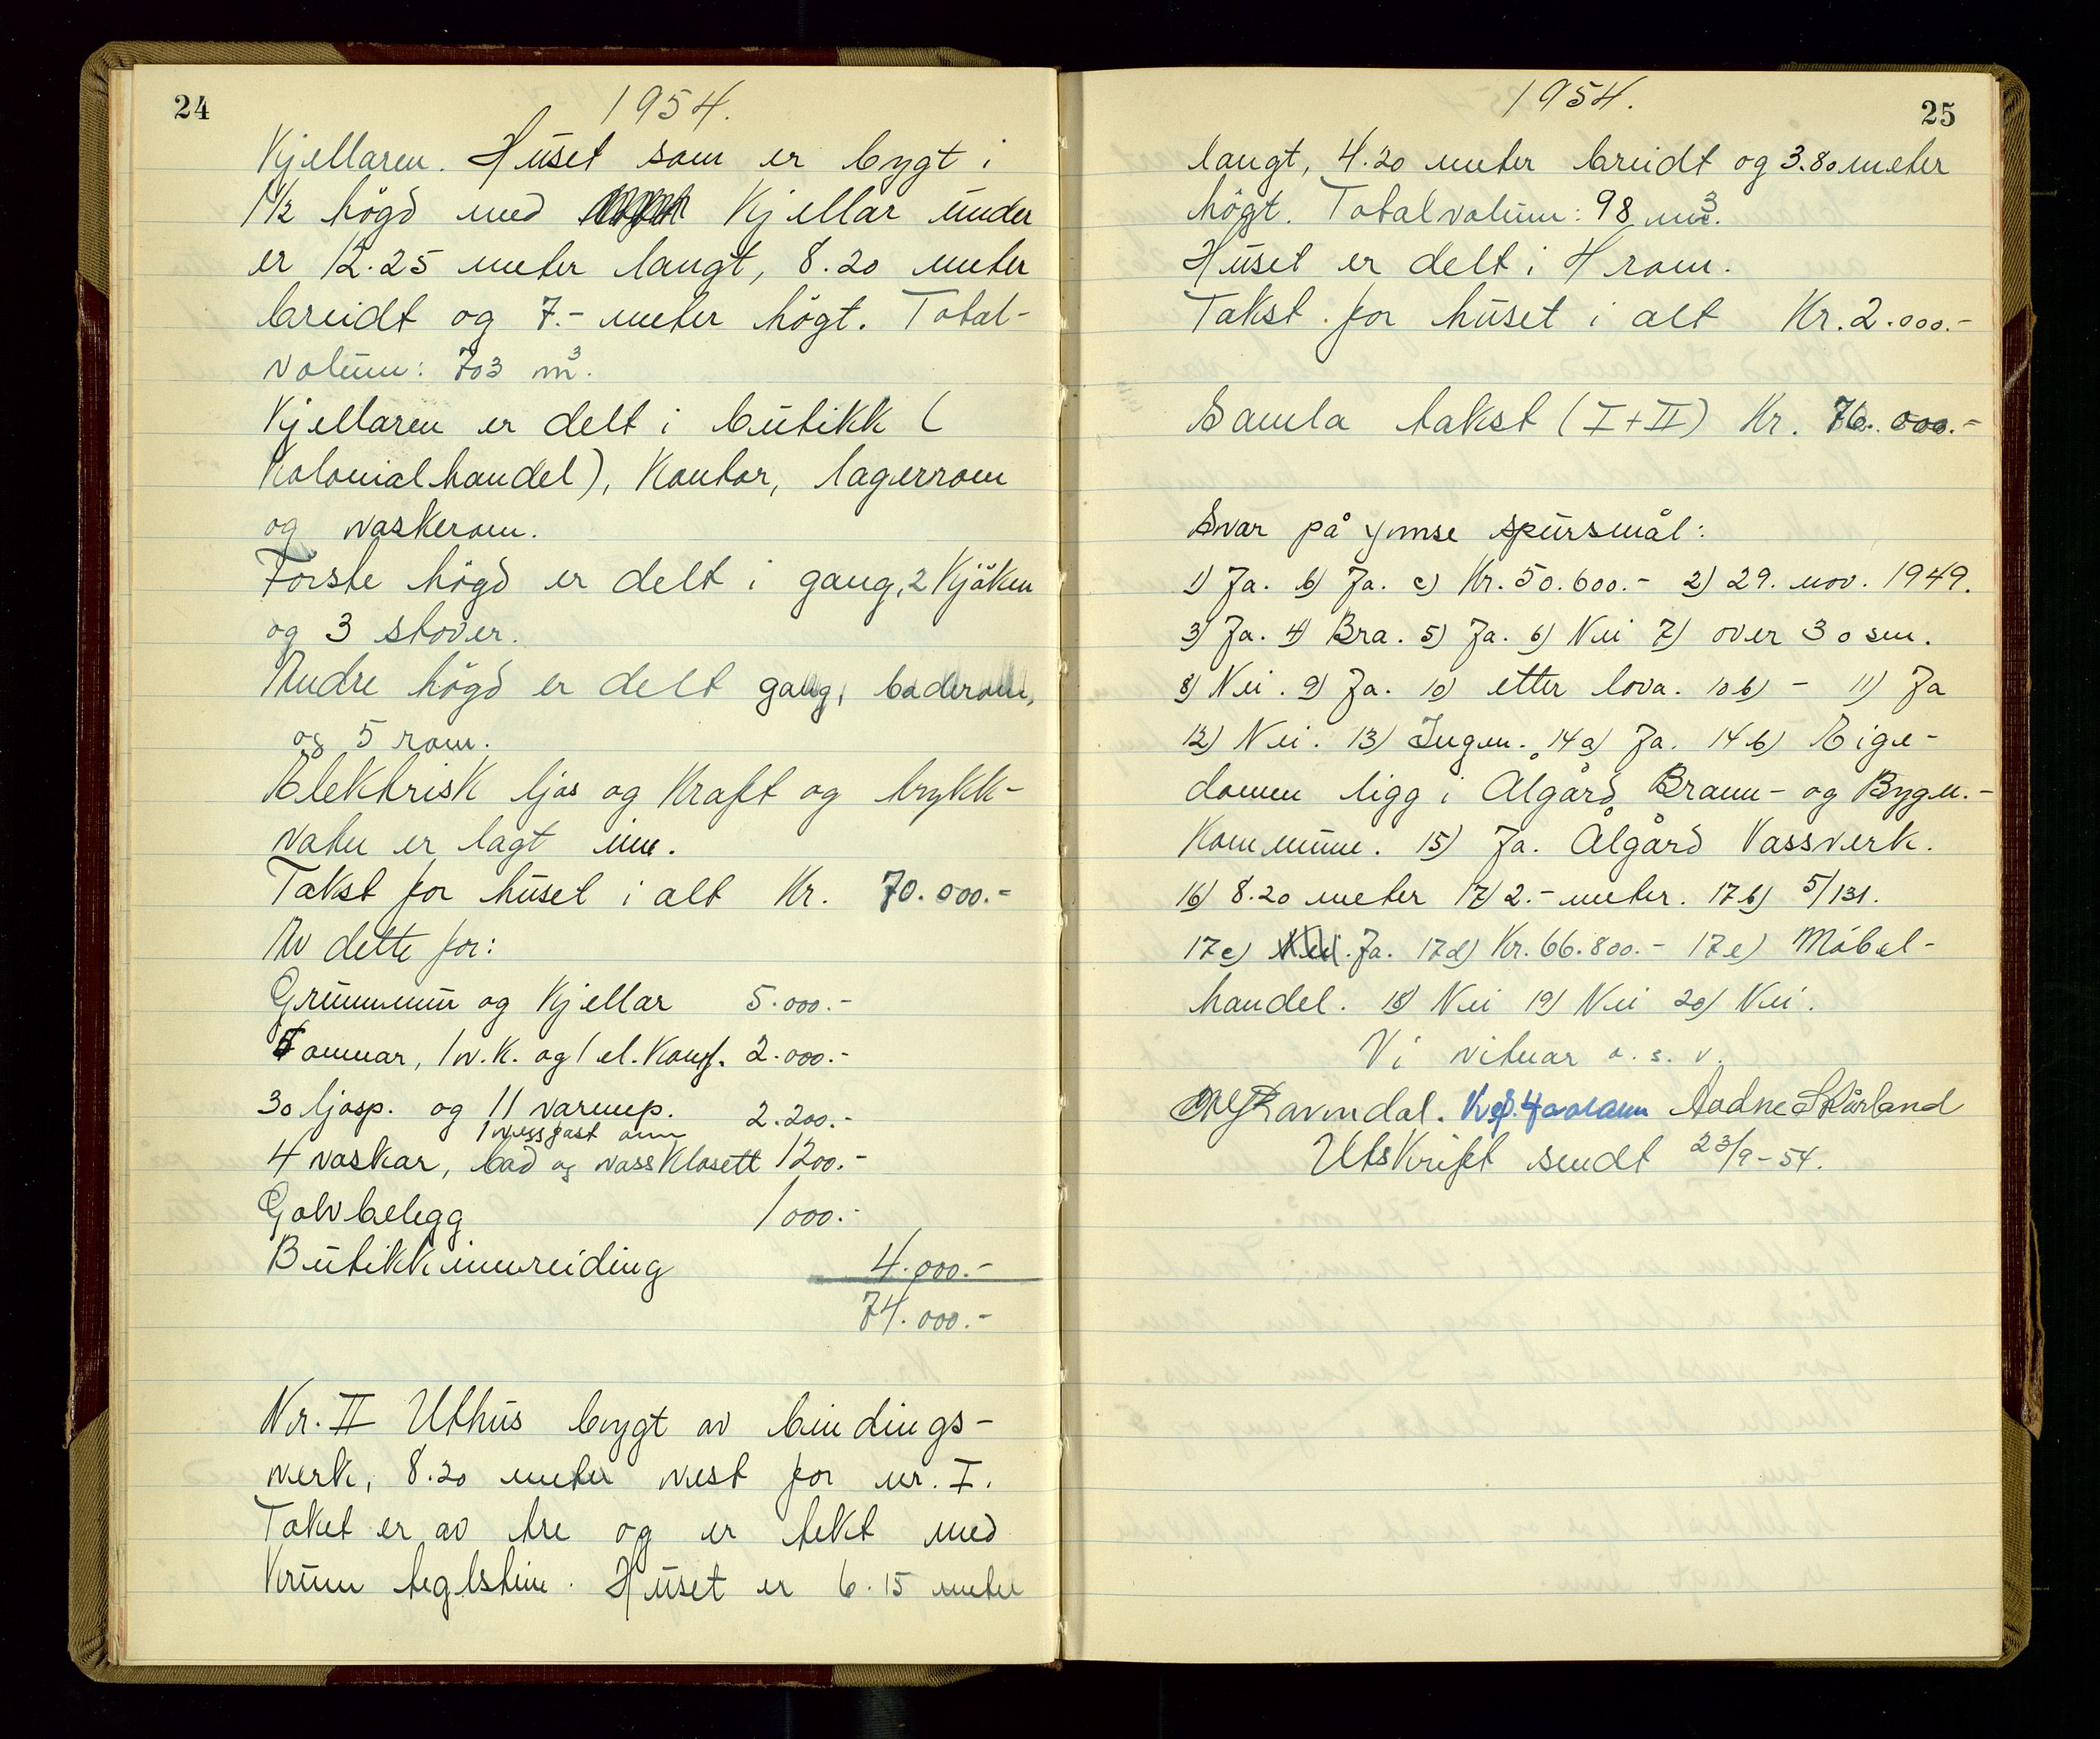 24
1954.
Kjellaren. Huset som er bygt i
1½ högd med Kjellar under
er 12.25 meter langt, 8.20 meter
breidt og 7.- meter högt. Total-
volum: 703 m³.
Kjellaren er delt i butikk (
Kolonialhandel), Kontor, lagerrom
og vaskerom.
Forste högd er delt i gang, 2 Kjöken
og 3 stover.
Andre högd er delt gang, baderom,
og 5 rom.
Elektrisk ljos og Kraft og trykk-
vatn er lagt inn.
Takst for huset i alt Kr. 70.000.-
Av dette for:
Grunnmur og Kjellar 5.000.-
5 omnar, 1 v.K. og 1 el. Komf. 2.000.-
30 ljosp. og 11 varmep. 2.200.-
1 vassfast omn
4 vaskar, bad og vassklosett 1200.-
Golvbelegg 1000.-
Butikkinnreiding 4.000.-
74.000.-
Nr. II Uthus bygt av bindings-
verk, 8.20 meter vest for nr. I.
Taket er av tre og er tekt med
Krum teglstein. Huset er 6.15 meter
1954.
25
langt, 4.20 meter breidt og 3.80 meter
högt. Totalvolum: 98 m³.
Huset er delt i 4 rom.
Takst for huset i alt Kr. 2.000.-
Samla takst (I+II) Kr. 76.000.-
Svar på ymse spursmål:
1) Ja. b) Ja. c) Kr. 50.600.- 2) 29. nov. 1949.
3) Ja. 4) Bra. 5) Ja. 6) Nei 7) over 30 sm.
8) Nei. 9) Ja. 10) etter lova. 10b) - 11) Ja
12) Nei. 13) Ingen. 14a) Ja. 14b) Eige-
domen ligg i Ålgård Brann- og Bygn.-
Kommune. 15) Ja. Ålgård Vassverk.
16) 8.20 meter 17) 2.- meter. 17b) 5/131.
17c) Nei. Ja. 17d) Kr. 66.800.- 17e) Möbel-
handel. 18) Nei 19) Nei 20) Nei.
Vi vitnar o. s. v.
Ravndal. Aadne Skårland
Utskrift sendt 23/9-54.